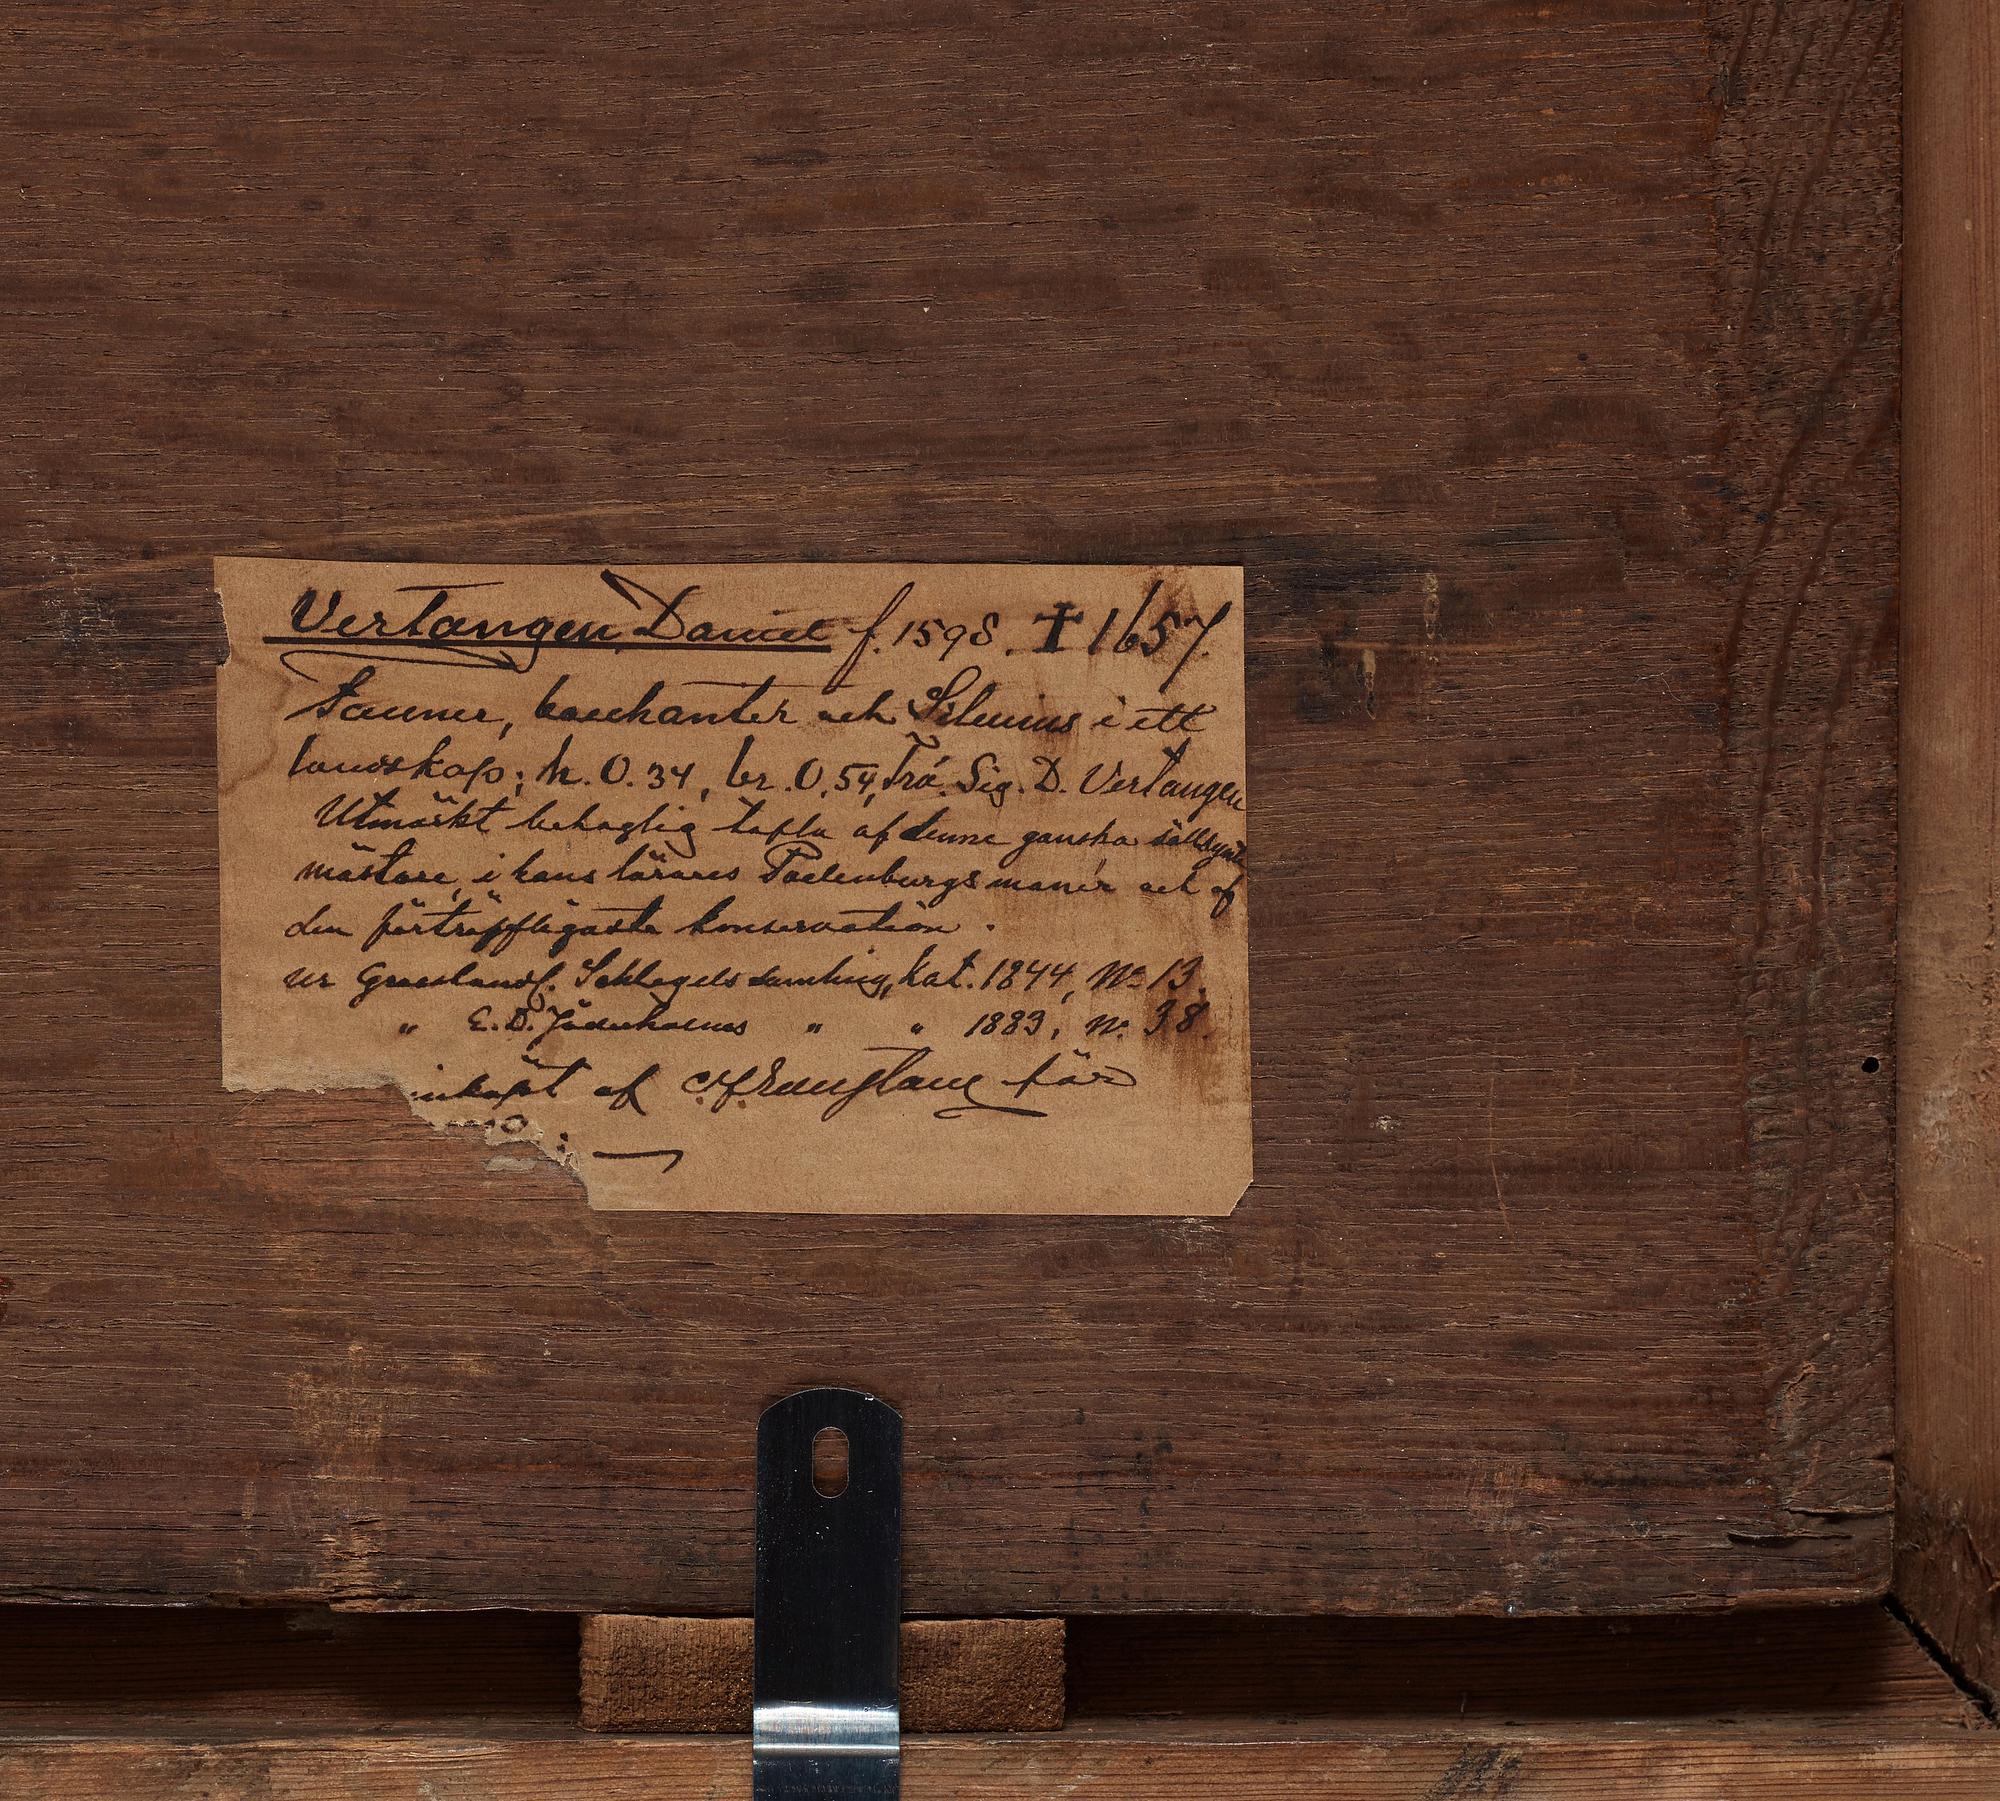 Vertangen Daniel f. 1598. † 1657.
Fauner, backanter och Silenus i ett
landskap; h. 0.34, br. 0,54, Trä. Sig. D. Vertangen
Utmärkt behaglig tafla af denne ganska sällsynte
mästare, i hans lärares Poelenburgs manér och af
den förträffligaste konservation.
ur Schlegels samling, kat. 1844, No 13.
" E. D. " " 1883, N. 38.
inköpt af för